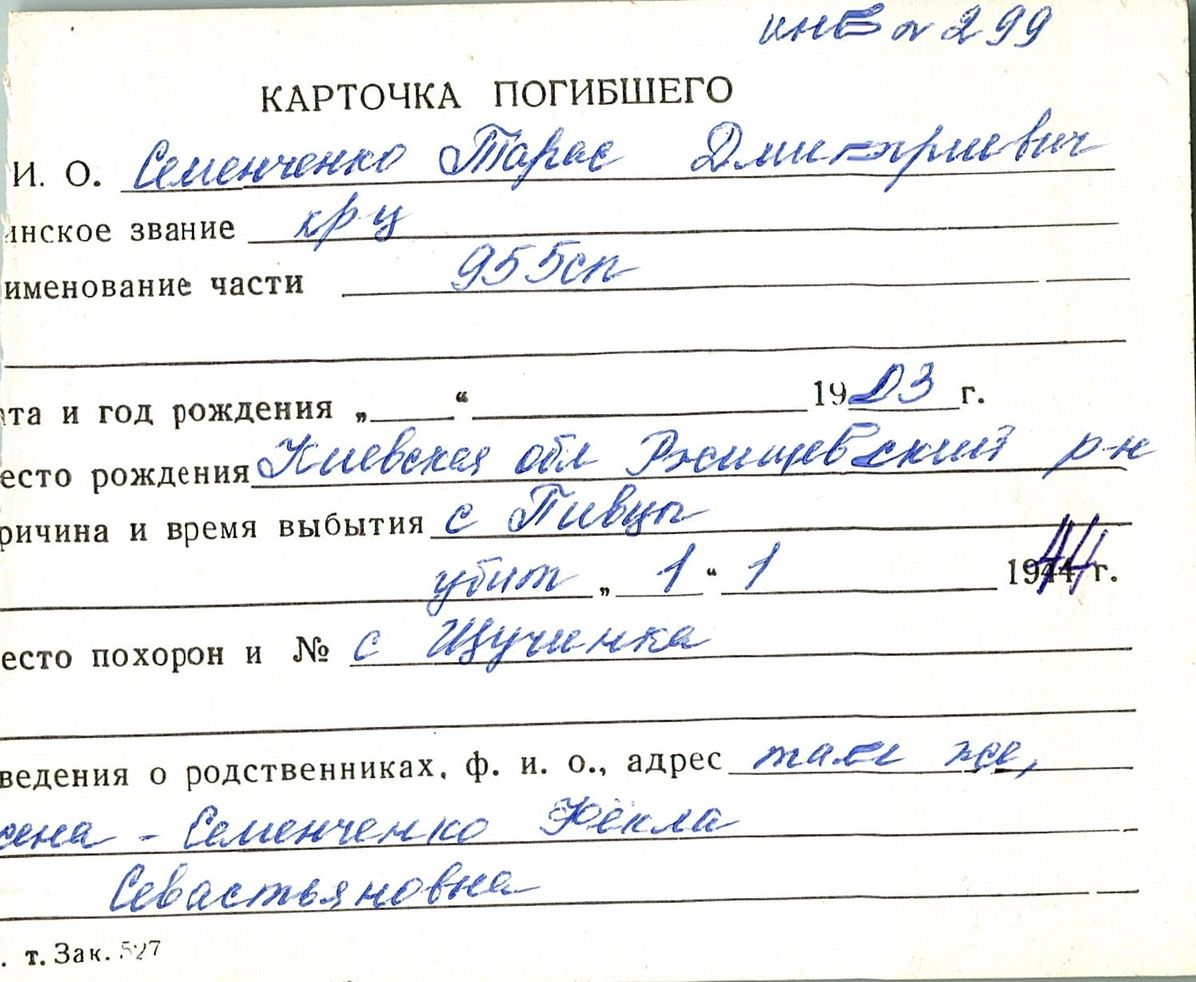 инв № 299
КАРТОЧКА ПОГИБШЕГО
И. О. Семенченко Тарас Дмитриевич
инское звание кр-ц
именование части 955сп
та и год рождения „ “ 1903 г.
есто рождения Киевская обл Ржищевский р-н
ричина и время выбытия с Пивцы
убит „ 1 “ 1 1944 г.
есто похорон и № с Щучинка
ведения о родственниках, ф. и. о., адрес там же,
жена - Семенченко Фёкла
Севастьяновна
. т. Зак. 527